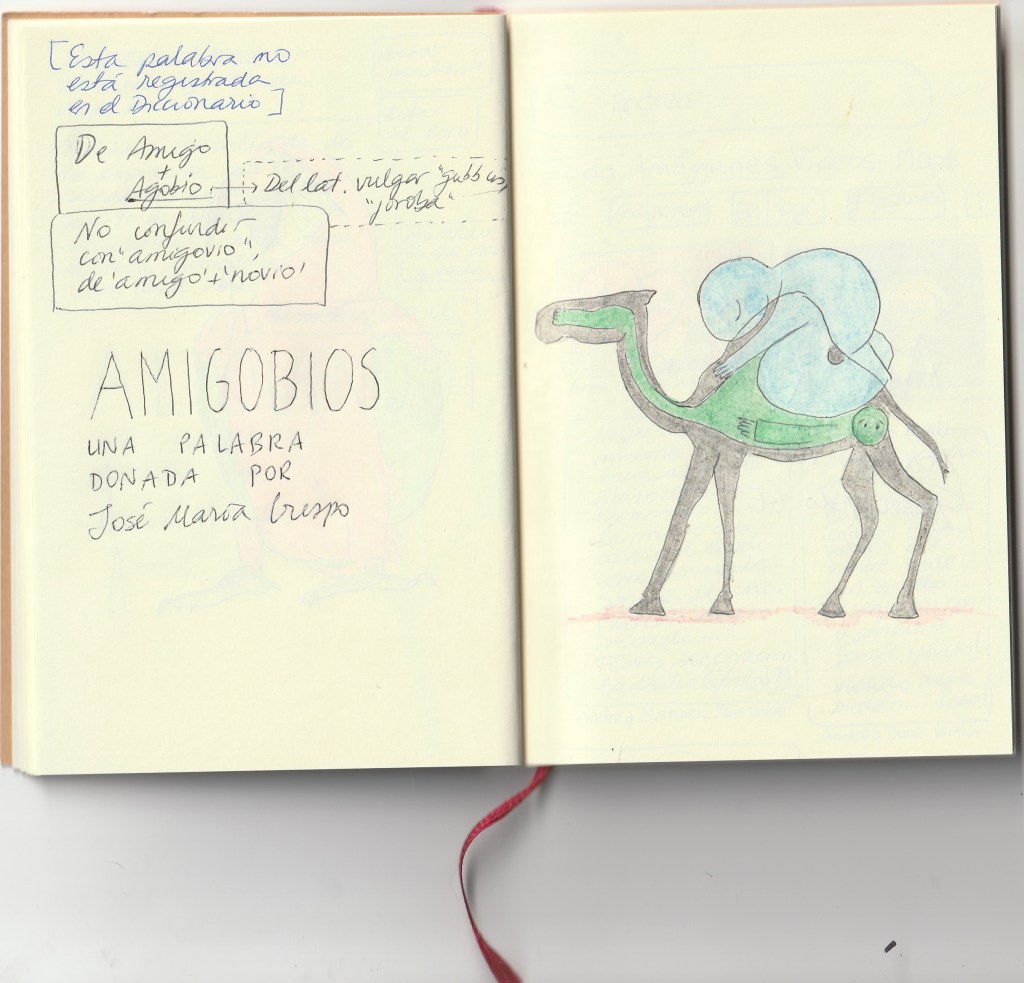 [Esta palabra no
está registrada
en el Diccionario]
De Amigo
+
Agobio
Del lat. vulgar "gubbus,
"joroba"
No confundir
con "amigovio",
de 'amigo' + 'novio'
AMIGOBIOS
UNA PALABRA
DONADA POR
José María Crespo